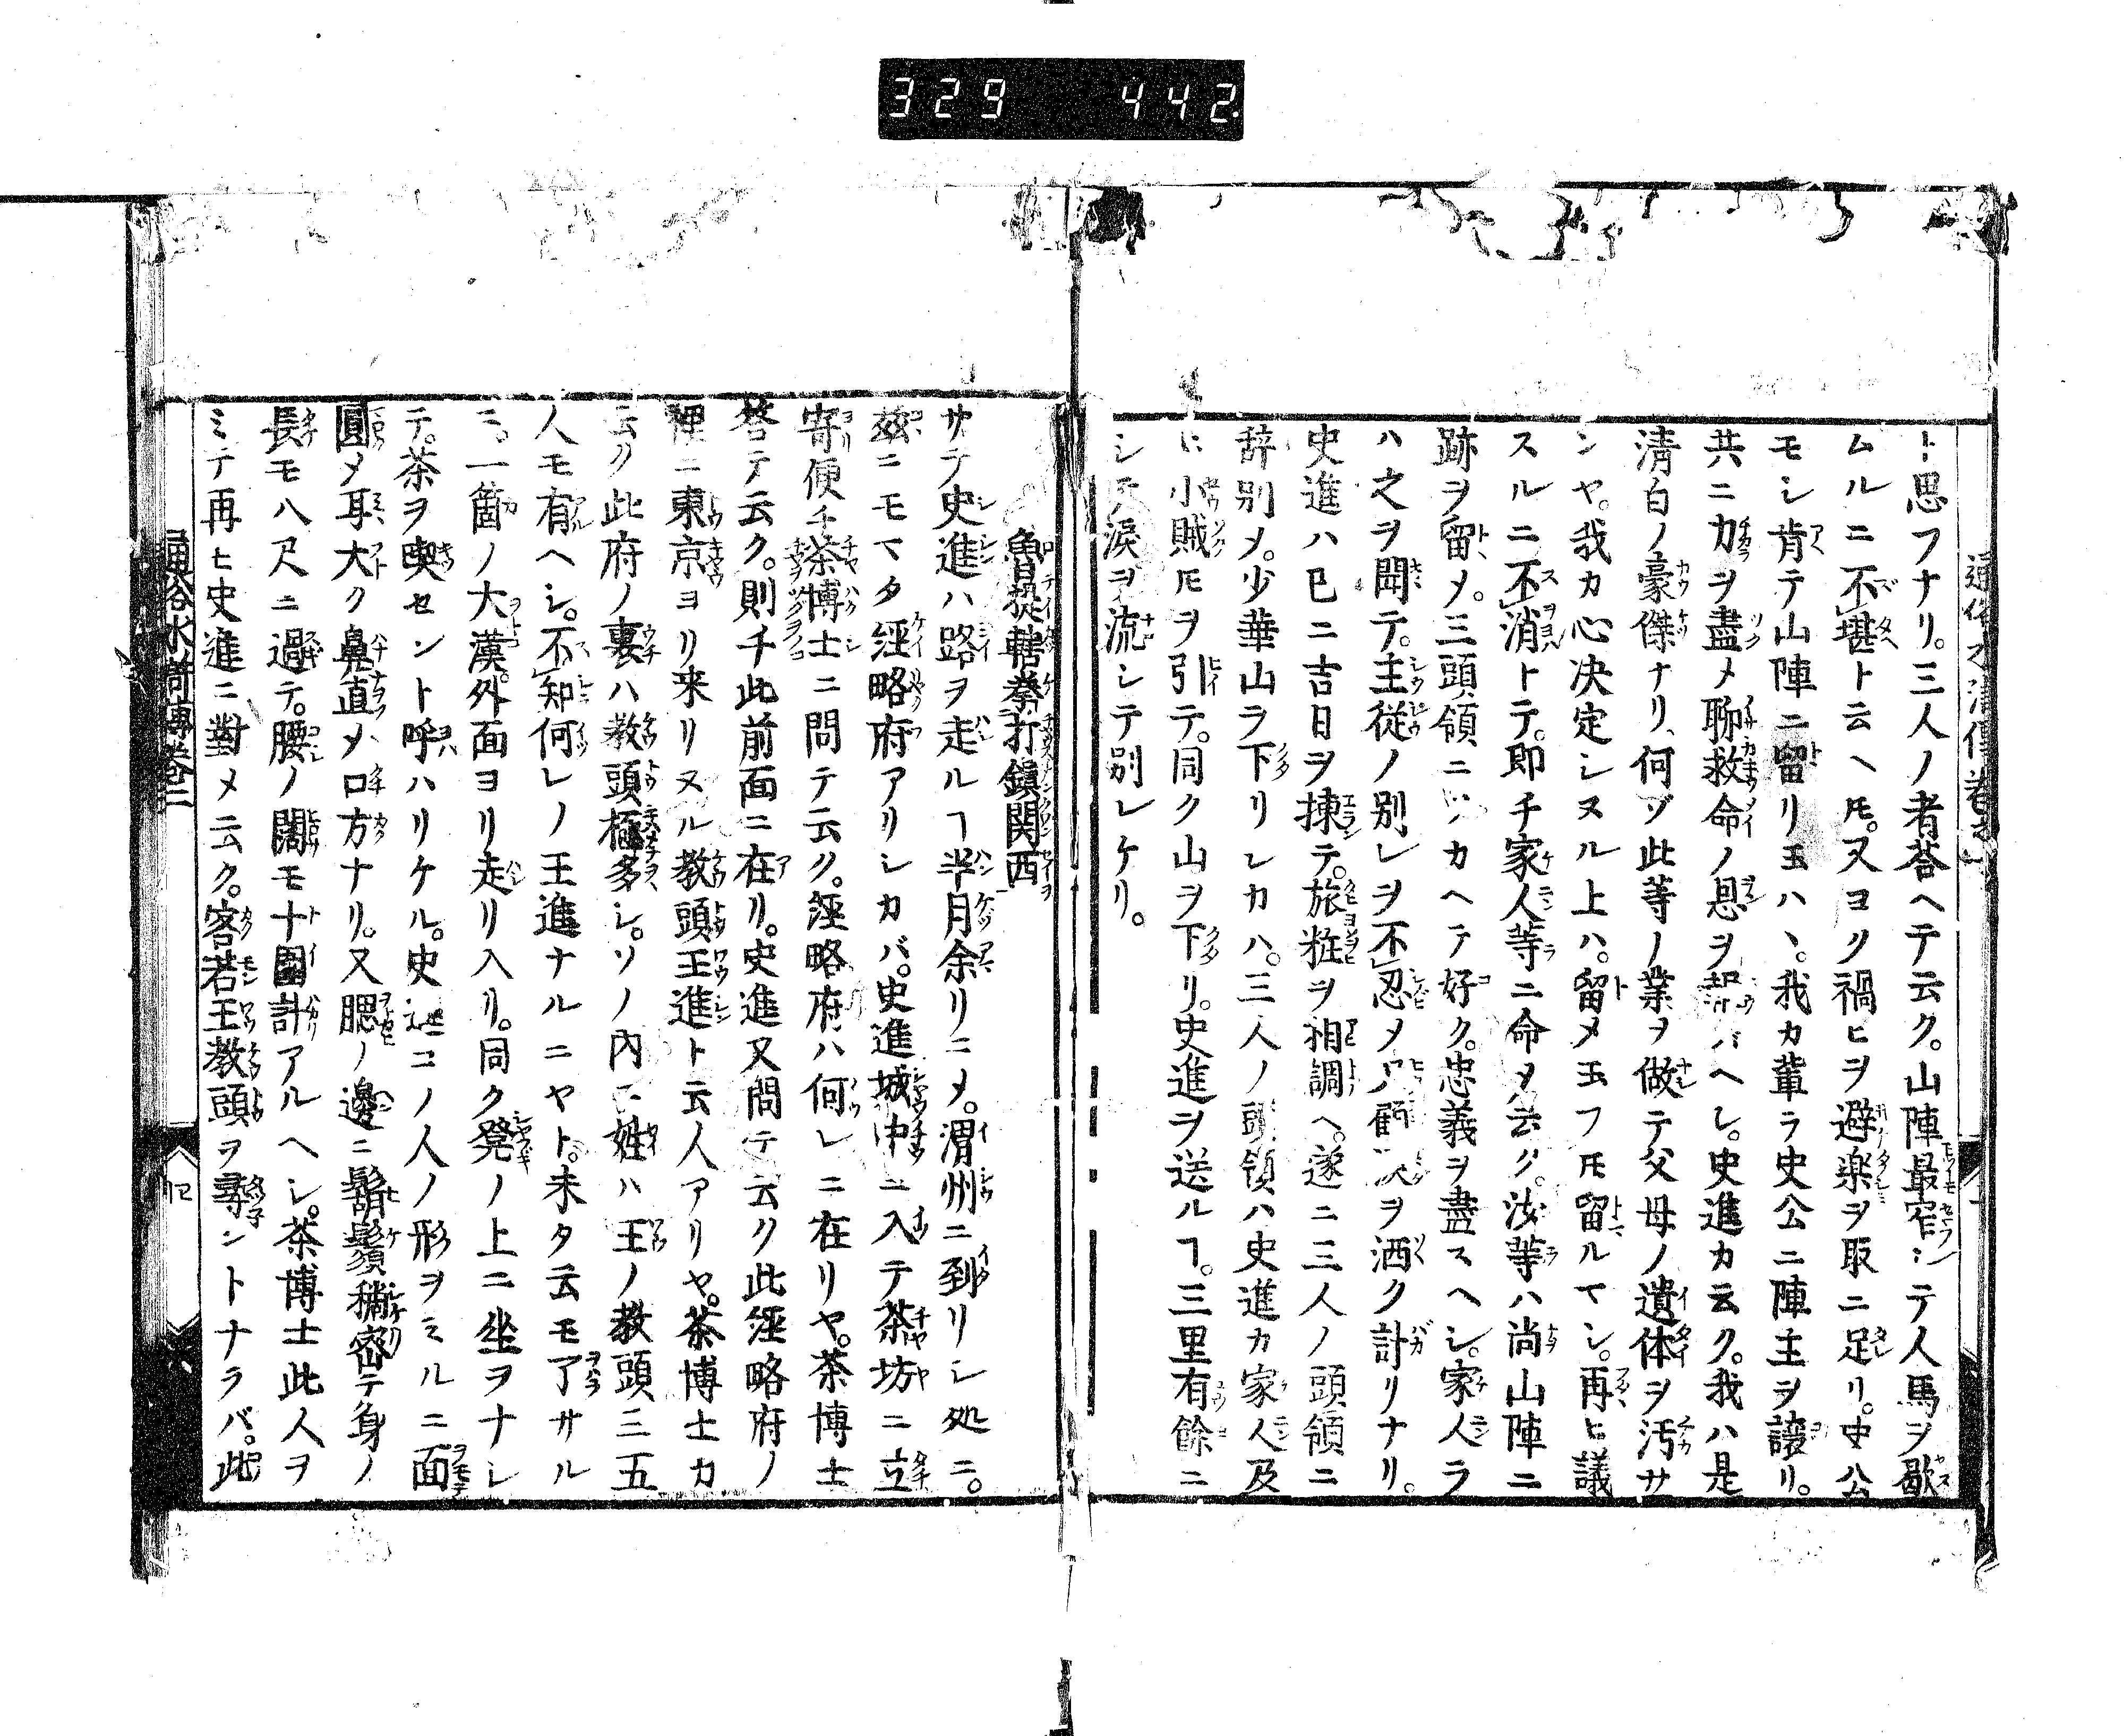 329 442.
ト思フナリ。三人ノ者荅ヘテ云ク。山陣最窄シテ人馬ヲ歇
ムルニ不堪ト云ヘ𪜈。又ヨク禍ヒヲ避楽ヲ取ニ足リ。史公
モシ肯テ山陣ニ留リ玉ハヽ。我カ輩ラ史公ニ陣主ヲ譲リ。
共ニ力ヲ盡メ聊救命ノ恩ヲ報ズベシ。史進カ云ク。我ハ是
清白ノ豪傑ナリ、何ゾ此等ノ業ヲ做テ父母ノ遺体ヲ汚サ
ンヤ。我カ心决定シヌル上ハ。留メ玉フ𪜈留ルマシ。再ヒ議
スルニ不消トテ。即チ家人等ニ命メ云ク。汝等ハ尚山陣ニ
跡ヲ留メ。三頭領ニツカヘテ好ク。忠義ヲ盡スヘシ。家人ラ
ハ之ヲ聞テ。主従ノ別レヲ不忍メ只顧涙ヲ洒ク計リナリ。
史進ハ已ニ吉日ヲ揀テ。旅粧ヲ相調ヘ。遂ニ三人ノ頭領ニ
辞別メ。少華山ヲ下リレカハ。三人ノ頭領ハ史進カ家人及
ヒ小賊𪜈ヲ引テ。同ク山ヲ下リ。史進ヲ送ルヿ。三里有餘ニ
シテ涙ヲ流シテ別レケリ。
魯提轄拳打鎭関西
サテ史進ハ路ヲ走ルヿ半月余リニメ。渭州ニ到リシ処ニ。
茲ニモマタ經略府アリシカバ。史進城中ニ入テ茶坊ニ立
寄便チ茶博士ニ問テ云ク。經略府ハ何レニ在リヤ。茶博士
荅テ云ク。則チ此前面ニ在リ。史進又問テ云ク此經略府ノ
裡ニ東京ヨリ来リヌル教頭王進ト云人アリヤ。茶博士カ
云ク此府ノ裏ハ教頭極多シ。ソノ内ニ姓ハ王ノ教頭三五
人モ有ヘシ。不知何レノ王進ナルニヤト。未タ云モ了サル
ニ。一箇ノ大漢。外面ヨリ走リ入リ。同ク凳ノ上ニ坐ヲナシ
テ。茶ヲ喫セント呼ハリケル。史進コノ人ノ形ヲミルニ面
圓メ耳大ク鼻直メ口方ナリ。又腮ノ邊ニ鬍鬚稠密テ身ノ
長モ八尺ニ過テ。腰ノ闊モ十圍計アルヘシ。茶博士此人ヲ
ミテ再ヒ史進ニ對メ云ク。客若王教頭ヲ尋ントナラバ。此
通俗水滸傳卷二